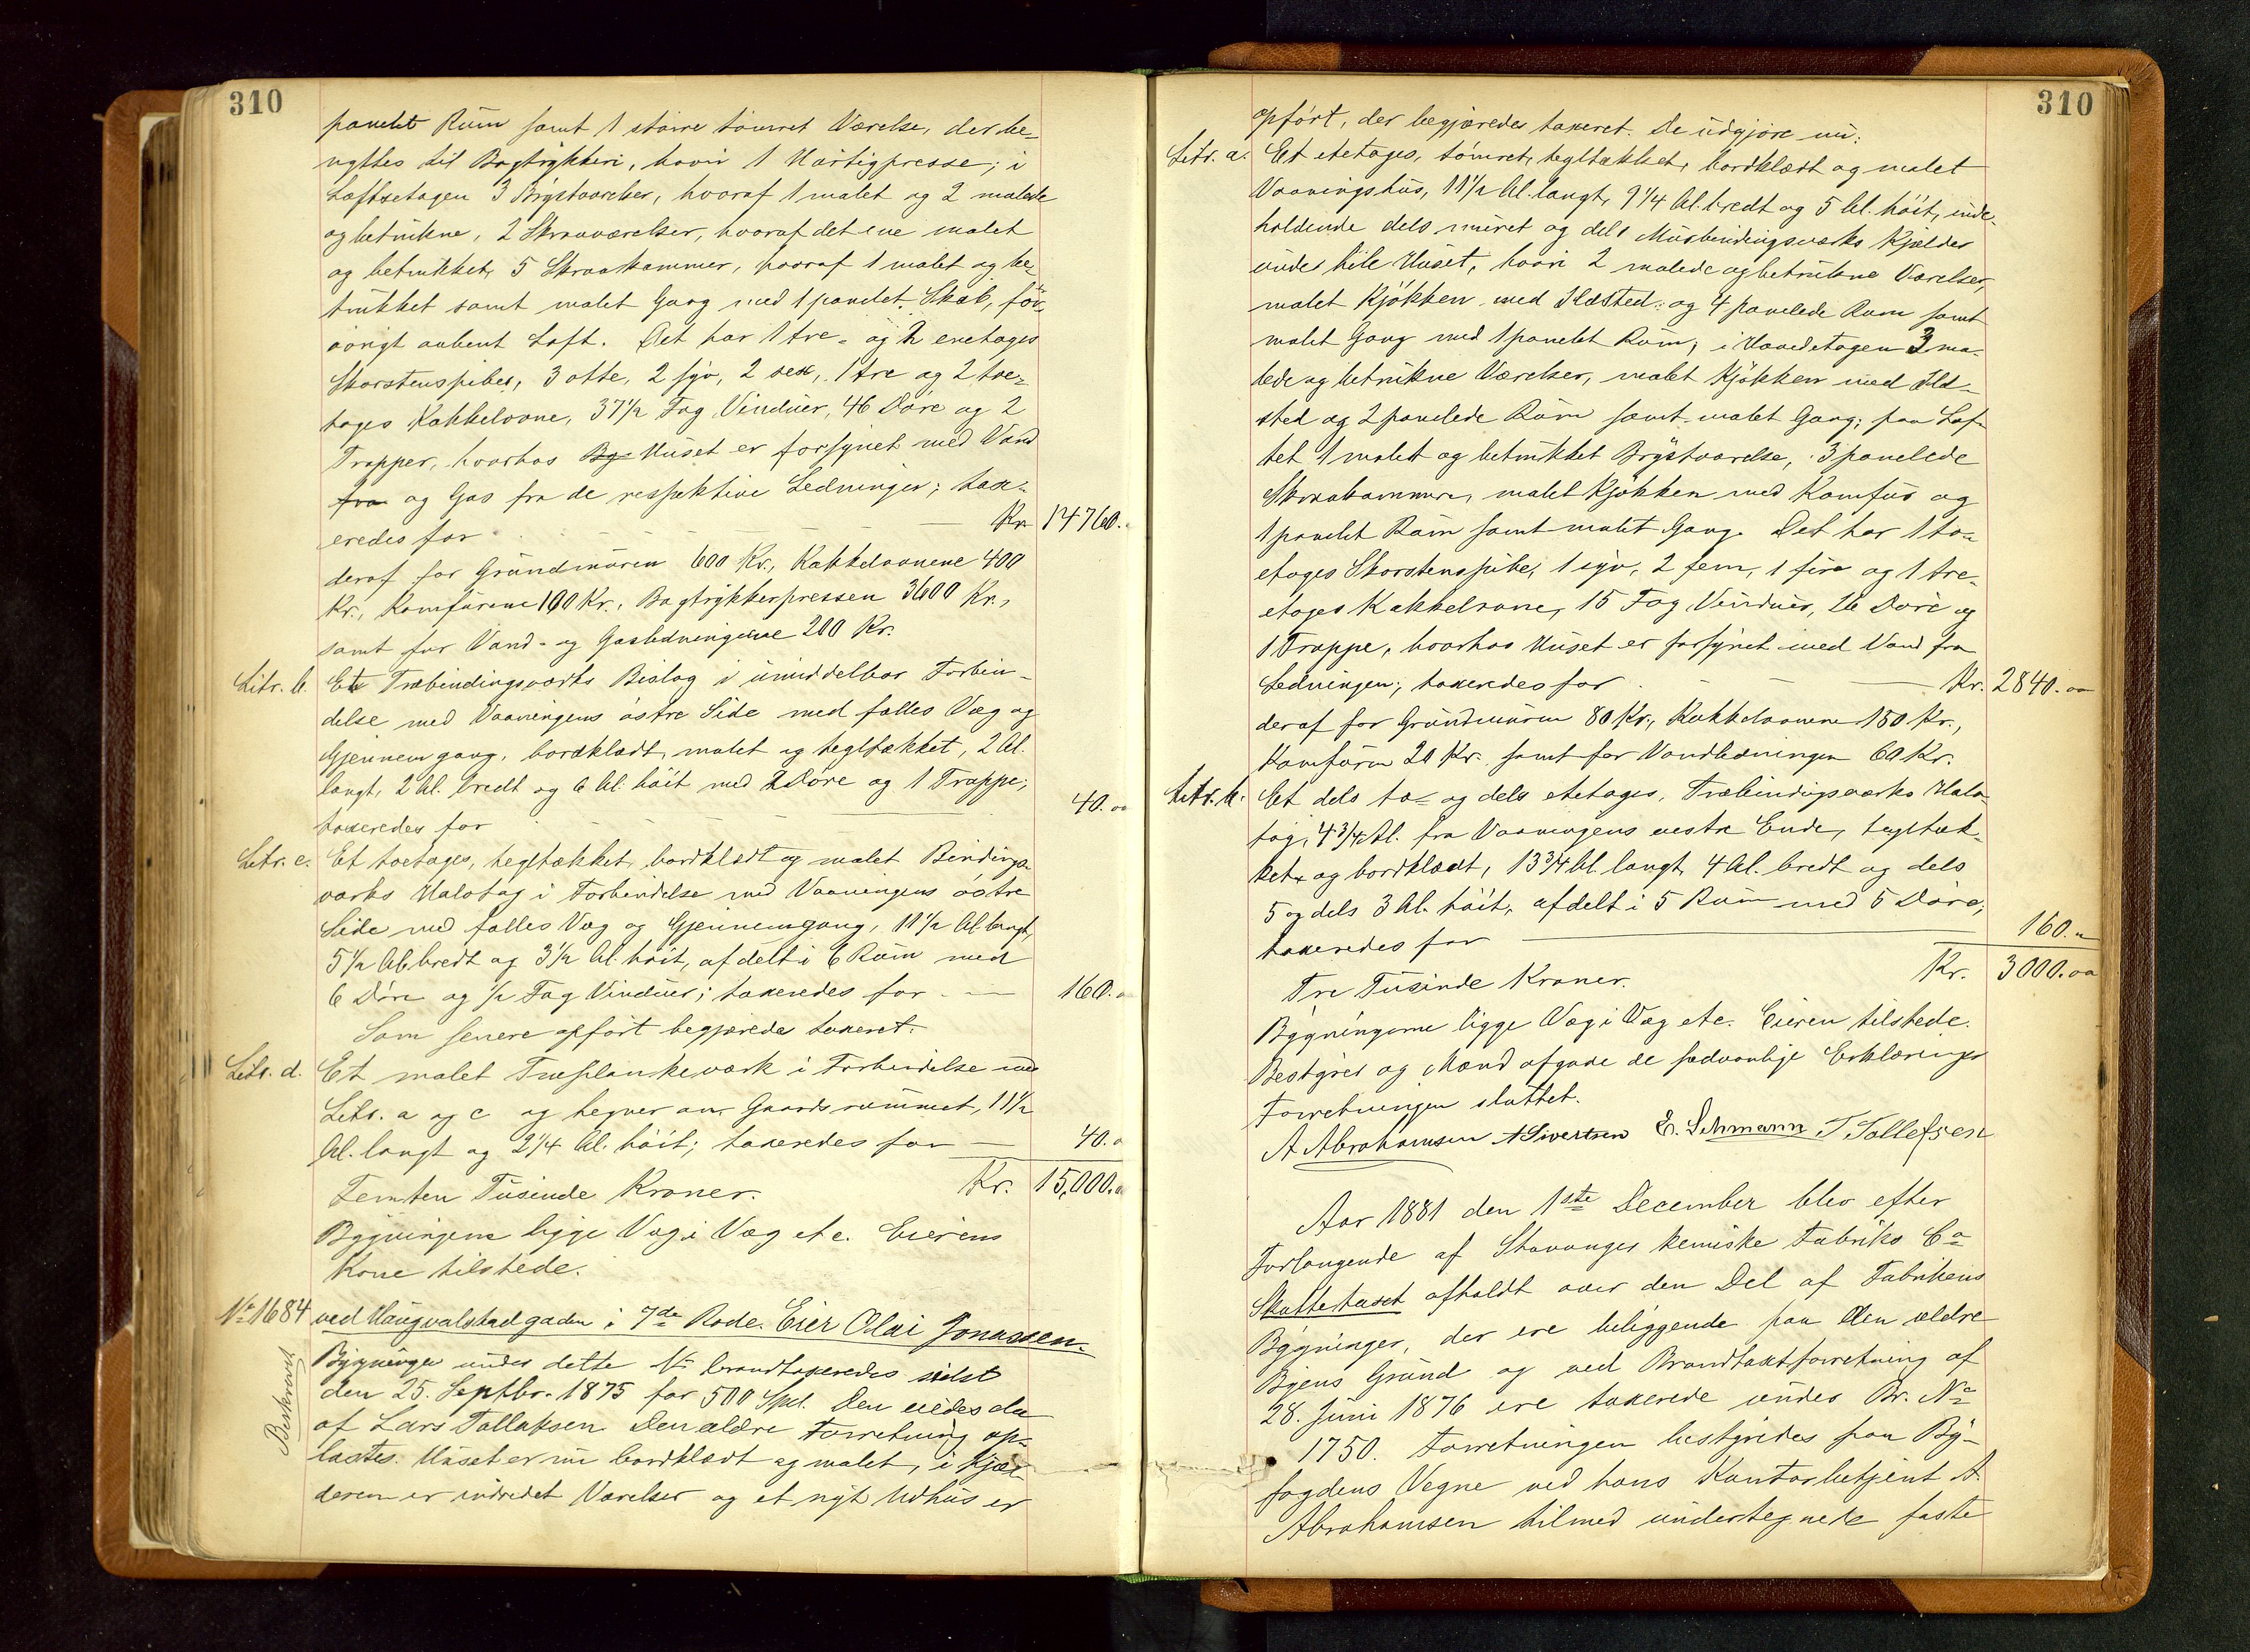 310
panelet Rum samt 1 större tömret Værelse, der be-
nyttes til Bogtrykkeri, hvori 1 Hurtigpresse; i
Loftsetagen 3 Brystværelser, hvoraf 1 malet og 2 malede
og betrukne, 2 Skraaværelser, hvoraf det ene malet
og betrukket, 5 Skraakammer, hvoraf 1 malet og be-
trukket samt malet Gang med 1 panelet Skab, for-
övrigt aabent Loft. Det har 1 tre- og 2 enetages
Skorstenspiber, 3 otte, 2 syv, 2 sex, 1 tre og 2 toe-
tages Kakkelovne, 37 1/2 Fag Vinduer, 46 Döre og 2
Trapper, hvorhos By Huset er forsynet med Vand
fra og Gas fra de respektive Ledninger; tax-
eredes for Kr 14760.
deraf for Grundmuren 600 Kr., Kakkelovnene 400
Kr., Komfurene 100 Kr., Bogtrykkerpressen 3600 Kr.,
samt for Vand- og Gasledningerne 200 Kr.
Litr. b. Et Træbindingsværks Bislag i umiddelbar Forbin-
delse med Vaaningens östre Side med fælles Væg og
Gjennemgang, bordklædt, malet og tegltækket, 2 Al.
langt, 2 Al. bredt og 6 Al. höit med 2 Döre og 1 Trappe;
taxeredes for 40.00
Litr. c. Et toetages, tegltækket, bordklædt og malet Bindings-
værks Halvtag i Forbindelse med Vaaningens östre
Side med fælles Væg og Gjennemgang, 11 1/2 Al. langt,
5 1/2 Al. bredt og 3 1/2 Al. höit, afdelt i 6 Rum med
6 Döre og 1/2 Fag Vinduer; taxeredes for 160.
Som senere opfört begjæredes taxeret.
Litr. d. Et malet Træplankeværk i Forbindelse med
Litr. a og c og hegner om Gaardsrummet, 11 1/2
Al. langt og 2 1/4 Al. höit; taxeredes for 40.
Femten Tusinde Kroner. Kr. 15,000.
Bygningerne ligge Væg i Væg etc. Eierens
Kone tilstede.
No 1684 ved Haugvalstadgaden i 7de Rode. Eier Olai Jonassen.
Beskrevet
Bygninger under dette No brandtaxeredes sidst
den 25. Septbr. 1875 for 500 Spd. Den eiedes da
af Lars Tollaksen. Den ældre Forretning op-
læstes. Huset er nu bordklædt og malet, i Kjæl-
deren er indredet Værelser og et nyt Udhus er
310
opfört, der begjæredes taxeret. De udgjöre nu:
Litr. a. Et etetages, tömret, tegltækket, bordklædt og malet
Vaaningshus, 11 1/2 Al. langt, 9 1/4 Al. bredt og 5 Al. höit, inde-
holdende dels muret og dels Murbindingsværks Kjælder
under hele Huset, hvori 2 malede og betrukne Værelser,
malet Kjökken med Ildsted og 4 panelede Rum samt
malet Gang med 1 panelet Rum; i Hovedetagen 3 ma-
lede og betrukne Værelser, malet Kjökken med Ild-
sted og 2 panelede Rum samt malet Gang; paa Lof-
tet 1 malet og betrukket Brystværelse, 3 panelede
Skraakammere, malet Kjökken med Komfur og
1 panelet Rum samt malet Gang. Det har 1 to-
etages Skorstenspibe, 1 syv, 2 fem, 1 fire og 1 tre-
etages Kakkelovne, 15 Fag Vinduer, 26 Döre og
1 Trappe, hvorhos Huset er forsynet med Vand fra
Ledningen; taxeredes for Kr. 2840.00
deraf for Grundmuren 80 Kr., Kakkelovnene 150 Kr.,
Komfuren 20 Kr. samt for Vandledningen 60 Kr.
Litr. b. Et dels to- og dels etetages, Træbindingsværks Halv-
tag, 4 3/4 Al. fra Vaaningens vestre Ende, tegltæk-
ket og bordklædt, 13 3/4 Al. langt, 4 Al. bredt og dels
5 og dels 3 Al. höit, afdelt i 5 Rum med 5 Döre;
taxeredes for 160.
Tre Tusinde Kroner. Kr. 3000.00
Bygningerne ligge Væg i Væg etc. Eieren tilstede.
Bestyrer og Mænd afgave de sædvanlige Erklæringer
Forretningen sluttet.
A Abrahamsen A Sivertsen E. Lehmann T Tollefsen
Aar 1881 den 1ste December blev efter
Forlangende af Stavanger kemiske Fabriks Co
Skattetaxt afholdt over den Del af Fabrikens
Bygninger, der ere beliggende paa den ældre
Byens Grund og ved Brandtaxtforretning af
28. Juni 1876 ere taxerede under Br. No
1750. Forretningen bestyredes paa By-
fogdens Vegne ved hans Kontorbetjent A.
Abrahamsen tilmed undertegnede faste